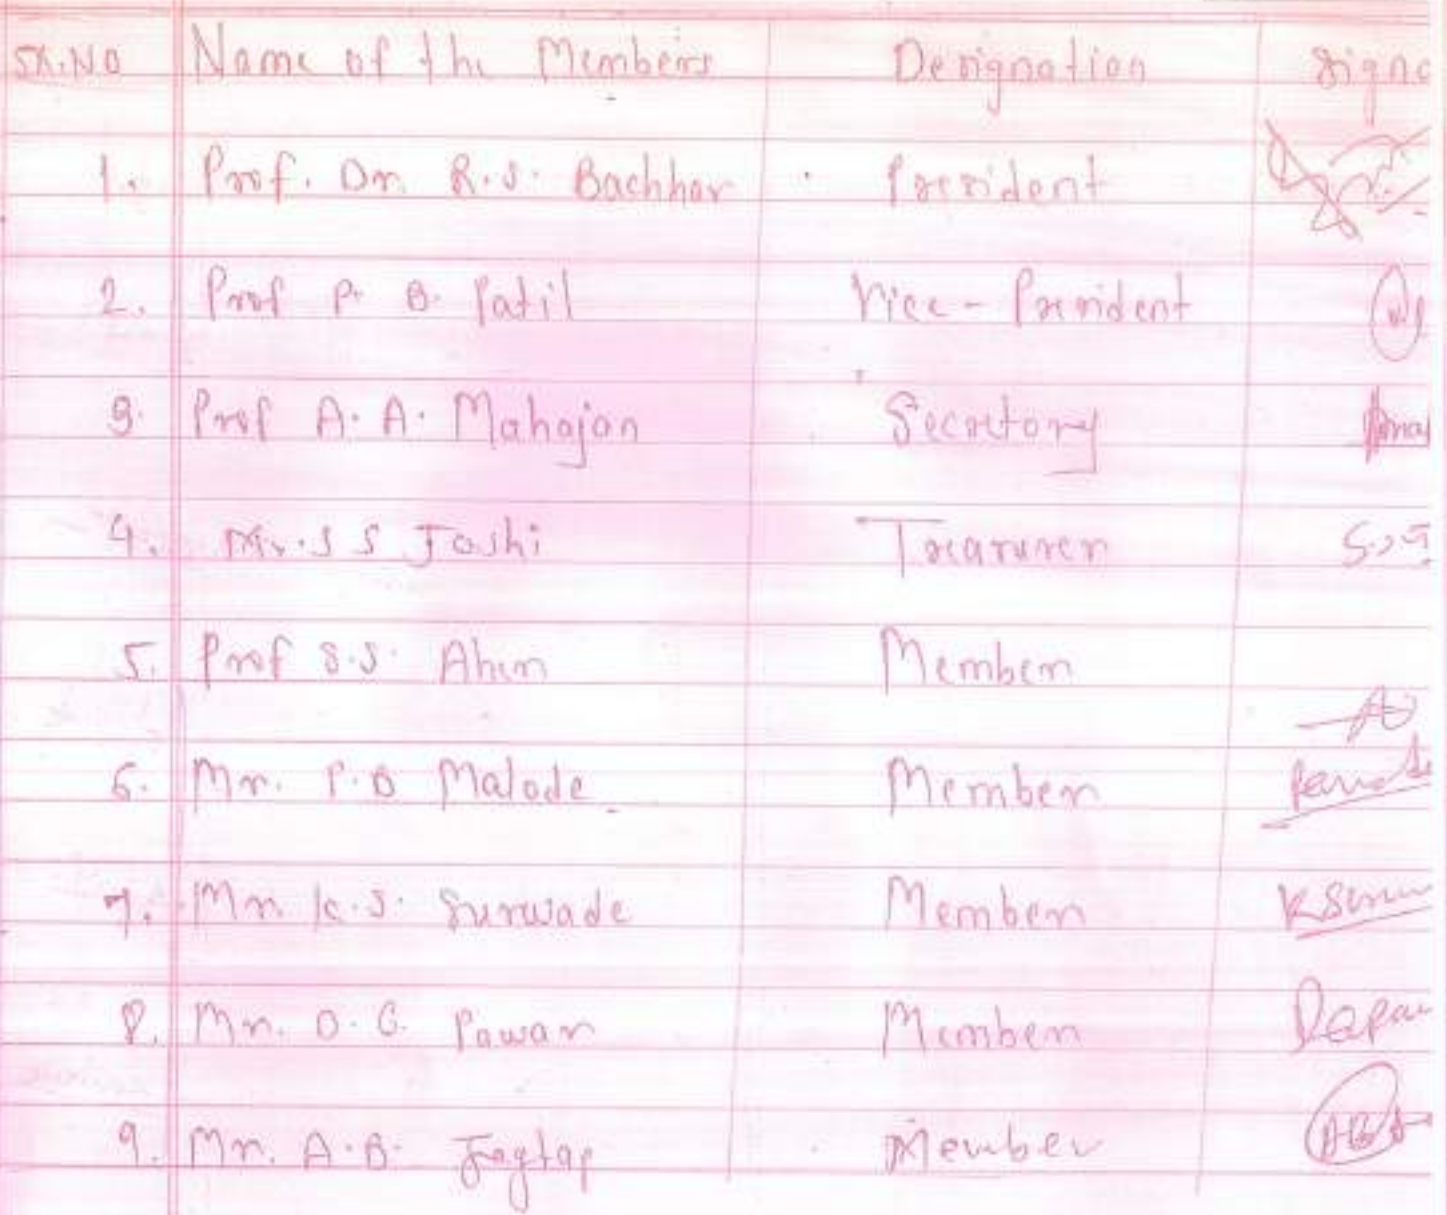 SR.NO Name of the Members Designation Signa
1. Prof. Dr. R.S. Bachhav President
2. Prof P. B. Patil Vice-President
3. Prof A. A. Mahajan Secretory
4. Mr. S S Joshi Treasurer
5. Prof S.S. Aher Member
6. Mr. P.B Malode Member
7. Mr. K.S. Surwade Member KSurw
8. Mr. D.G. Pawar Member Dapaw
9. Mr. A.B. Jagtap Member